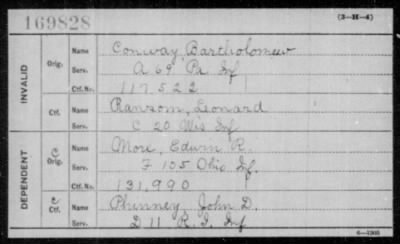 169828
(3-H-4)
INVALID
Orig.
Name Conway, Bartholomew
Serv. A 69 Pa Inf
Ctf. No. 117522
Ctf.
Name Ransom, Leonard
Serv. C 20 Wis Inf
DEPENDENT
C Orig.
Name More, Edwin R.
Serv. F 105 Ohio Inf.
Ctf. No. 131,990
C Ctf.
Name Phinney, John D.
Serv. D 11 R. I. Inf
6-1905